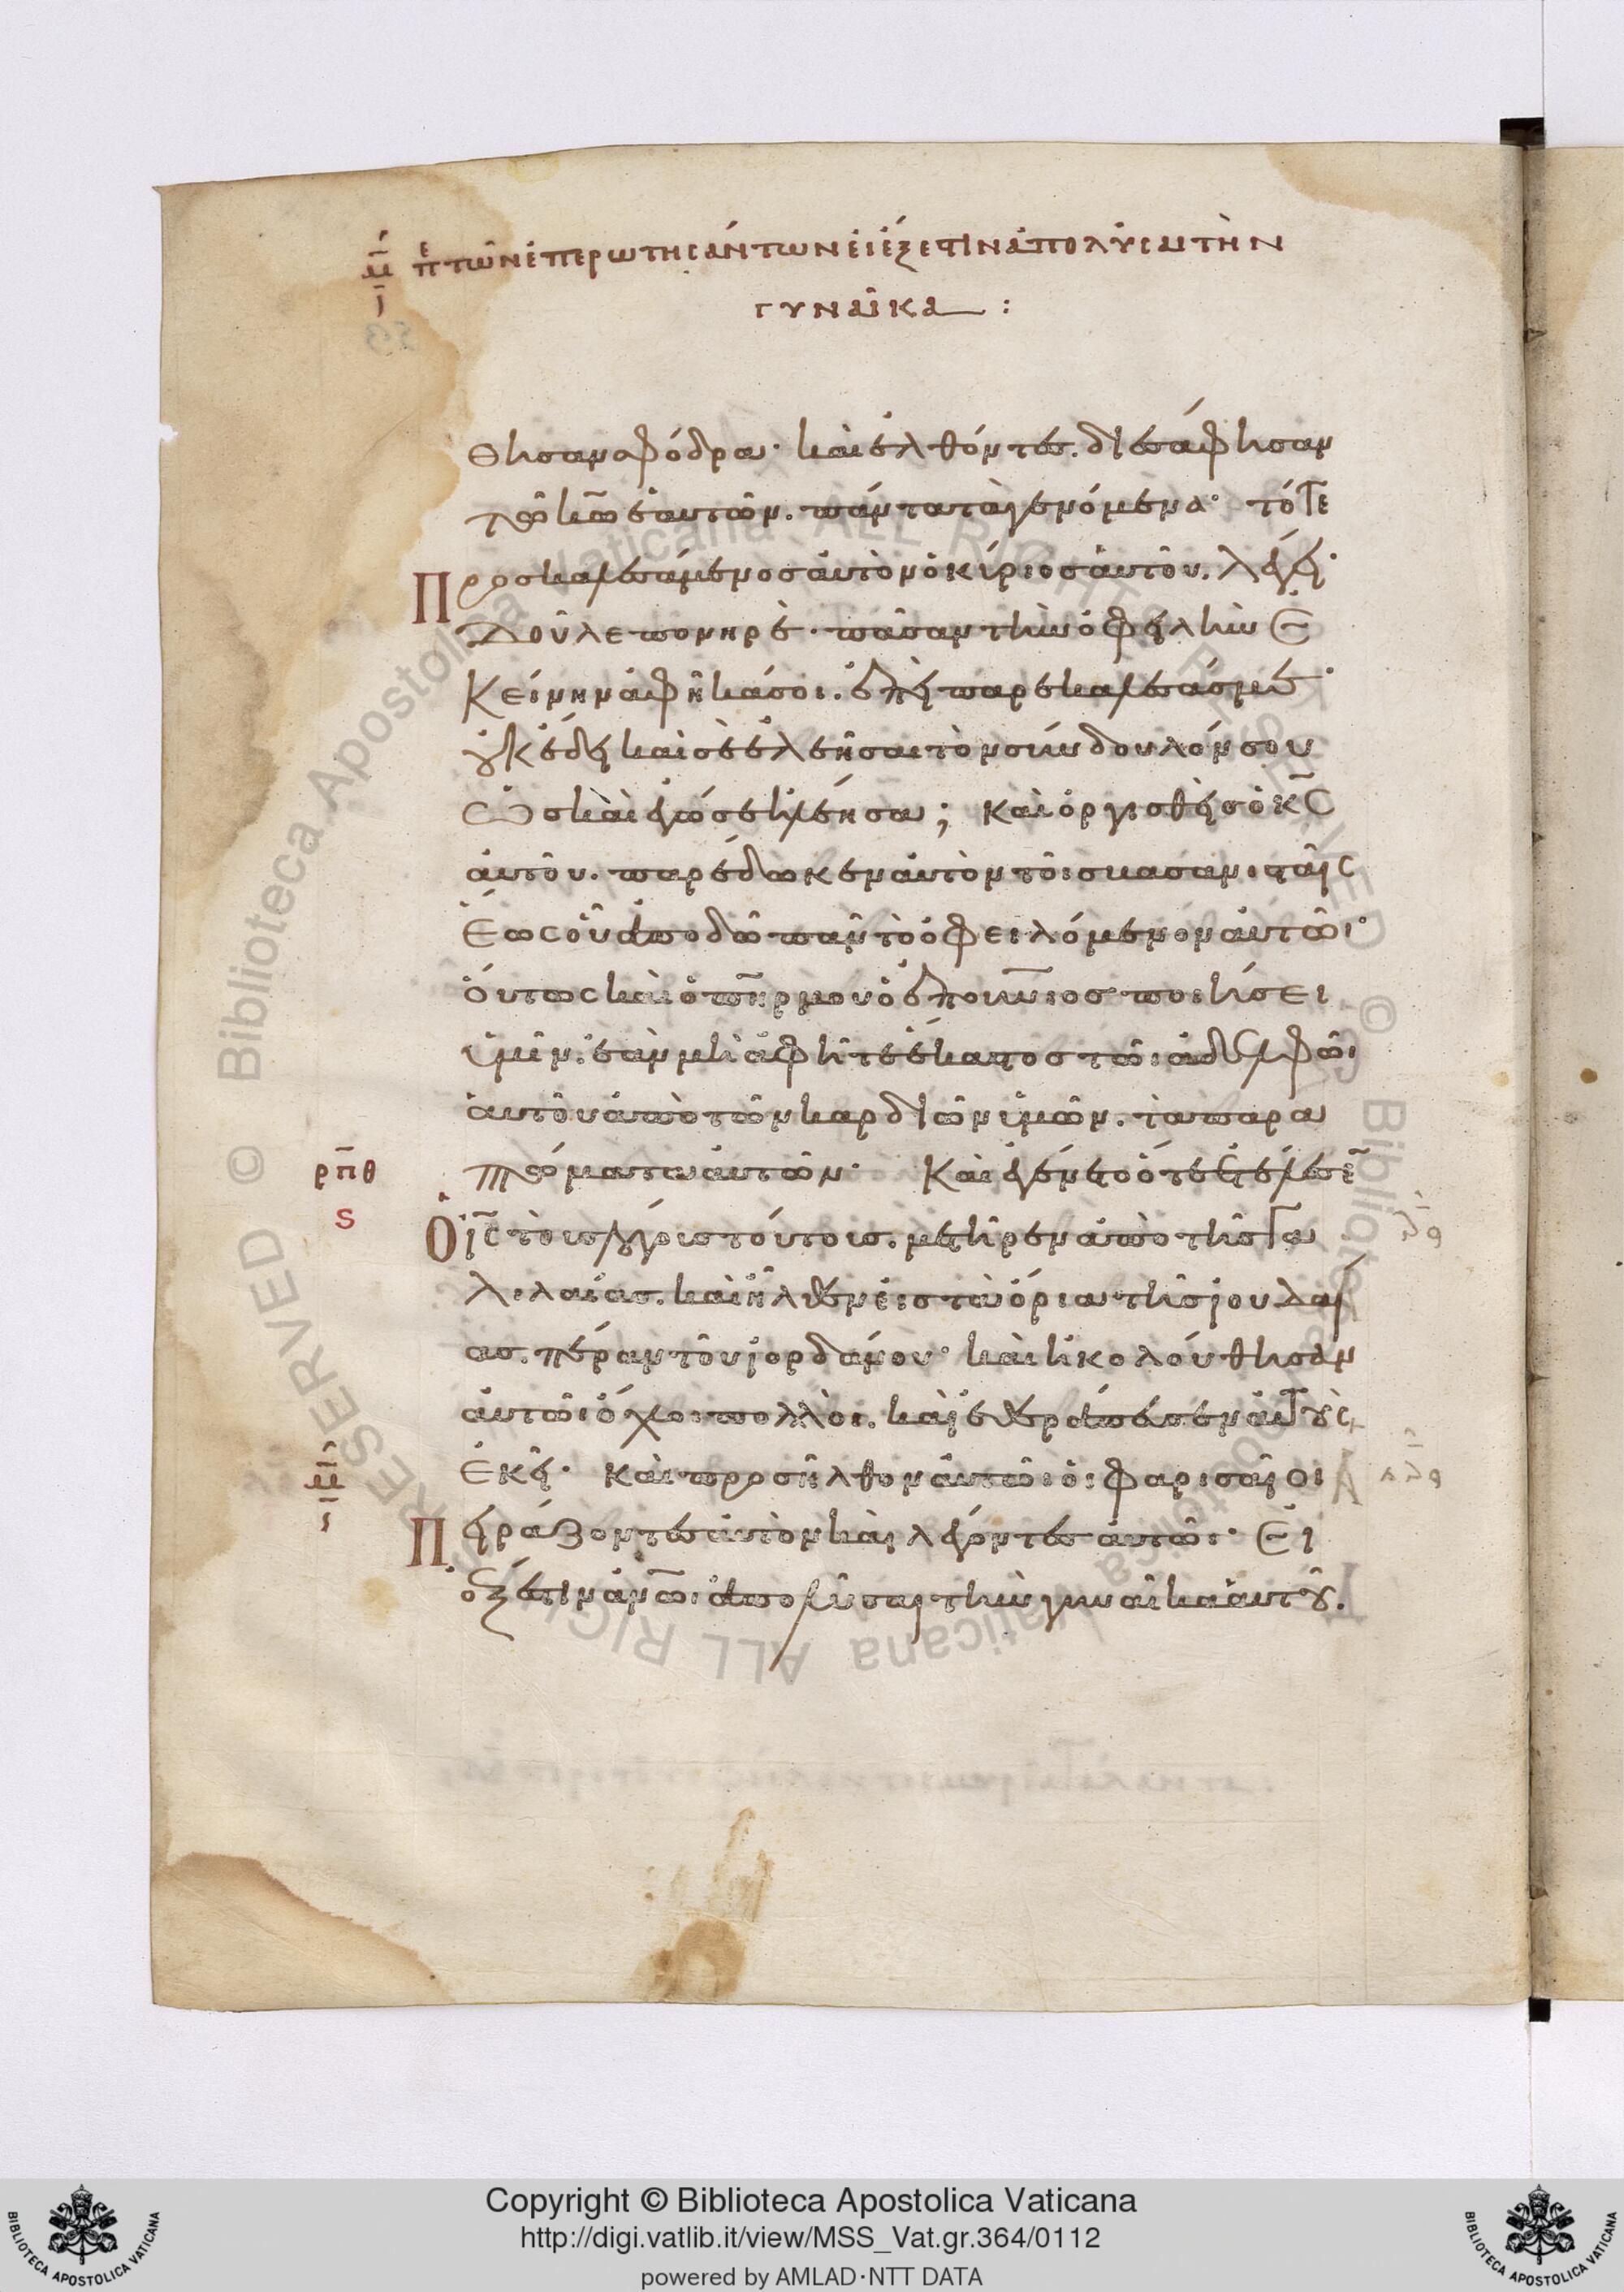 μ̅ π̅ τῶν ἐπερωτησάντων εἰ ἔξεστιν ἀπολύσαι τὴν
ι̅
γυναῖκα :
θησαν σφόδρα· καὶ ἐλθόντες. διεσάφησαν
τῷ κῶ ἑαυτῶν. πάντα τὰ γενόμενα· τότε
Προσκαλεσάμενος αὐτὸν ὁ κύριος αὐτοῦ. λέγει·
Δοῦλε πονηρέ. πᾶσαν τὴν ὀφειλὴν ἐ
κείνην ἀφῆκά σοι. ἐπεὶ παρεκάλεσάς με·
οὐκ ἔδει καὶ σὲ ἐλεῆσαι τὸν σύνδουλόν σου
ὡς καὶ ἐγώ σε ἠλέησα; καὶ ὀργισθεὶς ὁ κς̅
αὐτοῦ. παρέδωκεν αὐτὸν τοῖς βασανισταῖς
ἕως οὗ ἀποδῶ πᾶν τὸ ὀφειλόμενον αὐτῶι·
οὕτως καὶ ὁ πηρ̅ μου ὁ ἐπουνιος̅ ποιήσει
ὑμῖν. ἐὰν μὴ ἀφῆτε ἕκαστος τῶι ἀδελφῶι
αὐτοῦ ἀπὸ τῶν καρδιῶν ὑμῶν. τὰ παρα
πτώματα αὐτῶν· Καὶ ἐγένετο ὅτε ἐτέλεσε̅
ρ̅π̅θ
ς
Ὁ ις̅ τοὺς λόγους τούτους. μετῆρεν ἀπὸ τῆς Γα
λιλαίας. καὶ ἦλθεν εἰς τὰ ὅρια τῆς ἰουδαί
ας. πέραν τοῦ ἰορδάνου· καὶ ἠκολούθησαν
αὐτῶι ὄχλοι πολλοί. καὶ ἐθεράπευσεν αὐτοὺς
ἐκεῖ· καὶ προσῆλθον αὐτῶι οἱ φαρισαῖοι
μ̅
ι̅
Πειράζοντες αὐτὸν καὶ λέγοντες αὐτῶι· Εἰ
ἔξεστιν ἀνῶι̅ ἀπολῦσαι τὴν γυναῖκα αὐτοῦ.
© Biblioteca Apostolica Vaticana ALL RIGHTS RESERVED
Copyright © Biblioteca Apostolica Vaticana
http://digi.vatlib.it/view/MSS_Vat.gr.364/0112
powered by AMLAD·NTT DATA
BIBLIOTECA APOSTOLICA VATICANA
BIBLIOTECA APOSTOLICA VATICANA